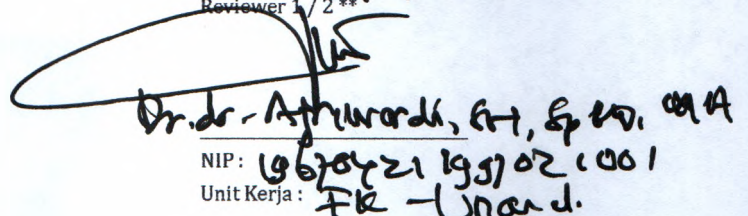 Reviewer 1 / 2 **
Dr. dr. Afriwardi, SH, Sp KO, MA
NIP : 196704211997021001
Unit Kerja : FK - Unand.